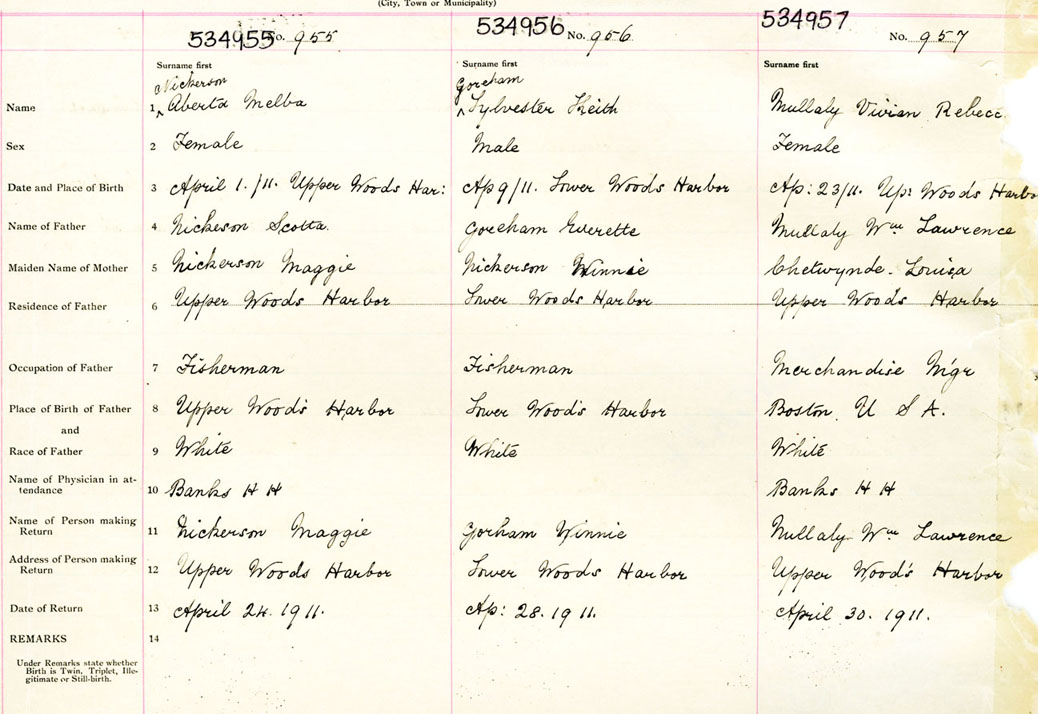 (City, Town or Municipality)
534955 No. 955 534956 No. 956 534957 No. 957
Surname first Surname first Surname first
Nickerson Goreham
Name 1 Aberta Melba Sylvester Keith Mullaly Vivian Rebecc
Sex 2 Female Male Female
Date and Place of Birth 3 April 1./11. Upper Woods Har: Ap 9/11. Lower Woods Harbor Ap: 23/11. Up: Woods Harbo
Name of Father 4 Nickeson Scotta. Goreham Everette Mullaly Wm Lawrence
Maiden Name of Mother 5 Nickerson Maggie Nickerson Winnie Chetwynde. Louisa
Residence of Father 6 Upper Woods Harbor Lower Woods Harbor Upper Woods Harbor
Occupation of Father 7 Fisherman Fisherman Merchandise Mgr
Place of Birth of Father 8 Upper Woods Harbor Lower Woods Harbor Boston U S A.
and
Race of Father 9 White White White
Name of Physician in at-
tendance 10 Banks H H Banks H H
Name of Person making
Return 11 Nickerson Maggie Gorham Winnie Mullaly Wm Lawrence
Address of Person making
Return 12 Upper Woods Harbor Lower Woods Harbor Upper Wood's Harbor
Date of Return 13 April 24. 1911. Ap: 28. 1911. April 30. 1911.
REMARKS 14
Under Remarks state whether
Birth is Twin, Triplet, Ille-
gitimate or Still-birth.